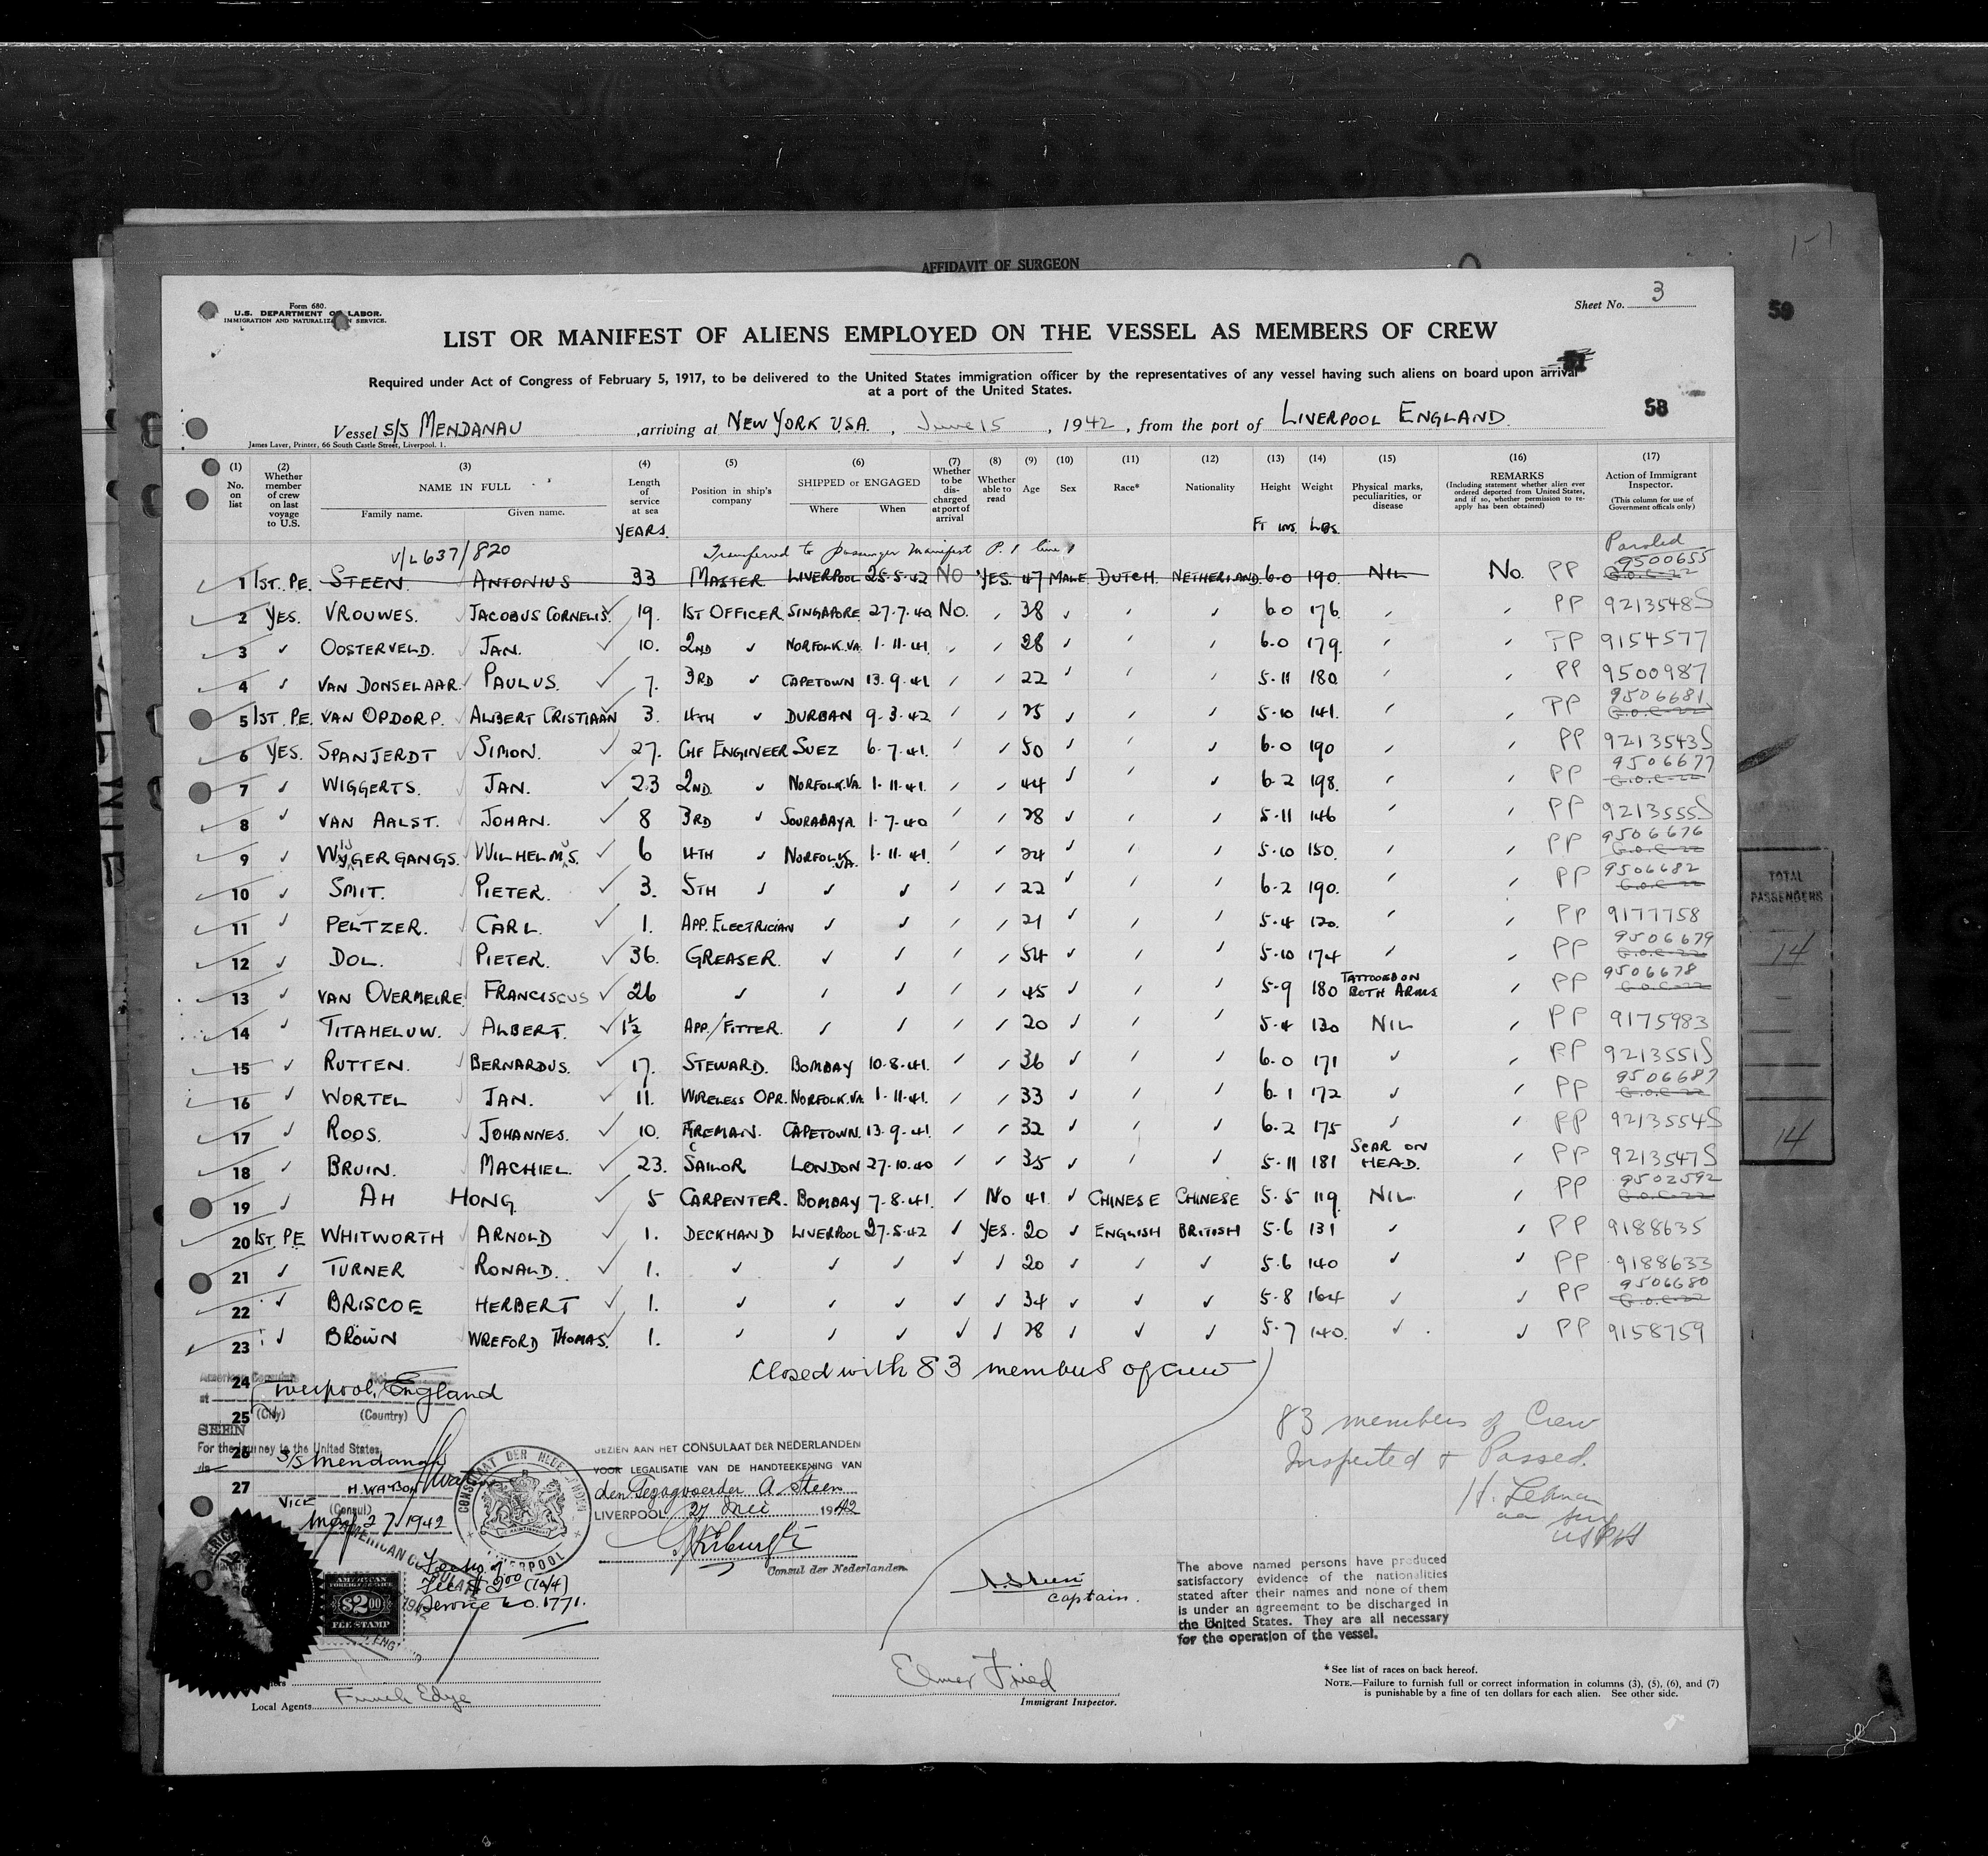 AFFIDAVIT OF SURGEON
Form 680.
U.S. DEPARTMENT OF LABOR.
IMMIGRATION AND NATURALIZATION SERVICE.
Sheet No. 3
LIST OR MANIFEST OF ALIENS EMPLOYED ON THE VESSEL AS MEMBERS OF CREW
Required under Act of Congress of February 5, 1917, to be delivered to the United States immigration officer by the representatives of any vessel having such aliens on board upon arrival
at a port of the United States.
59
58
Vessel S/S MENDANAU, arriving at NEW YORK USA, June 15, 1942, from the port of LIVERPOOL ENGLAND.
James Laver, Printer, 66 South Castle Street, Liverpool. 1.
(1) (2) (3) (4) (5) (6) (7) (8) (9) (10) (11) (12) (13) (14) (15) (16) (17)
No. on list Whether member of crew on last voyage to U.S. NAME IN FULL Family name. Given name. Length of service at sea YEARS. Position in ship's company SHIPPED or ENGAGED Where When Whether to be discharged at port of arrival Whether able to read Age Sex Race* Nationality Height FT INS Weight LBS. Physical marks, peculiarities, or disease REMARKS (Including statement whether alien ever ordered deported from United States, and if so, whether permission to reapply has been obtained) Action of Immigrant Inspector. (This column for use of Government officials only)
V/L 637/820 Transferred to passenger manifest P. 1 line 1 Paroled
1 1ST. PE. STEEN. ANTONIUS 33 MASTER LIVERPOOL 25.5.42 NO YES. 47 MALE DUTCH. NETHERLAND. 6-0 190. NIL No. PP 9500655 G.O.C-22
2 YES. VROUWES. JACOBUS CORNELIS. ✓ 19. 1ST OFFICER. SINGAPORE 27.7.40 No. 38 6-0 176 PP 9213548S
3 ✓ OOSTERVELD. JAN. 10. 2ND ✓ NORFOLK.VA. 1.11.41. 28 6-0 179. PP 9154577
4 ✓ VAN DONSELAAR. PAULUS. ✓ 7. 3RD ✓ CAPETOWN 13.9.41 22 5-11 180. PP 9500987
5 1ST. PE. VAN OPDORP. ALBERT CRISTIAAN 3. 4TH ✓ DURBAN 9.3.42 25 5-10 141. PP 9506681 G.O.C-22
6 YES. SPANJERDT SIMON. ✓ 27. CHF ENGINEER SUEZ 6.7.41. 50 6-0 190 PP 9213543S
7 ✓ WIGGERTS. JAN. ✓ 23 2ND. ✓ NORFOLK.VA. 1.11.41. 44 6-2 198. PP 9506677 G.O.C-22
8 ✓ VAN AALST. JOHAN. ✓ 8 3RD ✓ SOURABAYA 1.7.40 28 5-11 146 PP 9213555S
9 ✓ WIJGERGANGS. WILHELMUS. ✓ 6 4TH ✓ NORFOLK VA. 1.11.41. 24 5-10 150. PP 9506676 G.O.C-22
10 ✓ SMIT. PIETER. ✓ 3. 5TH ✓ ✓ ✓ 22 6-2 190. PP 9506682 G.O.C-22
11 ✓ PELTZER. CARL. ✓ 1. APP. ELECTRICIAN ✓ ✓ 21 5-4 120. PP 9177758
12 ✓ DOL. PIETER. ✓ 36. GREASER. ✓ ✓ 54 5-10 174 PP 9506679 G.O.C-22
13 ✓ VAN OVERMEIRE FRANCISCUS ✓ 26 ✓ ✓ ✓ 45 5-9 180 TATTOOED ON BOTH ARMS PP 9506678 G.O.C-22
14 ✓ TITAHELUW. ALBERT. ✓ 1½ APP./FITTER. ✓ ✓ 20 5-4 130 NIL PP 9175983
15 ✓ RUTTEN. BERNARDUS. ✓ 17. STEWARD. BOMBAY 10.8.41. 36 6-0 171 ✓ PP 9213551S
16 ✓ WORTEL JAN. ✓ 11. WIRELESS OPR. NORFOLK.VA 1.11.41. 33 6-1 172 ✓ PP 9506687 G.O.C-22
17 ✓ ROOS. JOHANNES. ✓ 10. FIREMAN. CAPETOWN. 13.9.41. 32 6-2 175 ✓ PP 9213554S
18 ✓ BRUIN. MACHIEL. ✓ 23. SAILOR LONDON 27.10.40 35 5-11 181 SCAR ON HEAD. PP 9213547S
19 ✓ AH HONG ✓ 5 CARPENTER. BOMBAY 7.8.41. NO 41. ✓ CHINESE CHINESE 5-5 119. NIL. PP 9502592 G.O.C-22
20 1ST. PE WHITWORTH ARNOLD ✓ 1. DECKHAND LIVERPOOL 27.5.42 ✓ YES. 20 ✓ ENGLISH BRITISH 5-6 131 ✓ PP 9188635
21 ✓ TURNER RONALD. ✓ 1. ✓ ✓ ✓ ✓ ✓ 20 ✓ ✓ ✓ 5-6 140 ✓ ✓ PP 9188633
22 ✓ BRISCOE HERBERT ✓ 1. ✓ ✓ ✓ ✓ ✓ 34 ✓ ✓ ✓ 5-8 164 ✓ ✓ PP 9506680 G.O.C-22
23 ✓ BROWN WREFORD THOMAS. 1. ✓ ✓ ✓ ✓ ✓ 28 ✓ ✓ ✓ 5-7 140. ✓ ✓ PP 9158759
24
25
26
27
Closed with 83 members of crew
American Consulate No.
at Liverpool, England
(City) (Country)
SEEN
For the journey to the United States,
via S/S Mendanau
H. WATSON
VICE (Consul)
May 27, 1942
AMERICAN
FOREIGN SERVICE
$2.00
FEE STAMP
Fee $2.00 (10/4)
Service No. 1771.
CONSULAAT DER NEDERLANDEN
LIVERPOOL
GEZIEN AAN HET CONSULAAT DER NEDERLANDEN
VOOR LEGALISATIE VAN DE HANDTEEKENING VAN
den Gezagvoerder A. Steen
LIVERPOOL 27 Mei 1942
Consul der Nederlanden
A. Steen
captain.
83 members of Crew
Inspected & Passed.
H. Lehman
USPHS
The above named persons have produced
satisfactory evidence of the nationalities
stated after their names and none of them
is under an agreement to be discharged in
the United States. They are all necessary
for the operation of the vessel.
Local Agents Funch Edye
Elmer Fried
Immigrant Inspector.
* See list of races on back hereof.
NOTE.—Failure to furnish full or correct information in columns (3), (5), (6), and (7)
is punishable by a fine of ten dollars for each alien. See other side.
TOTAL
PASSENGERS
14
14